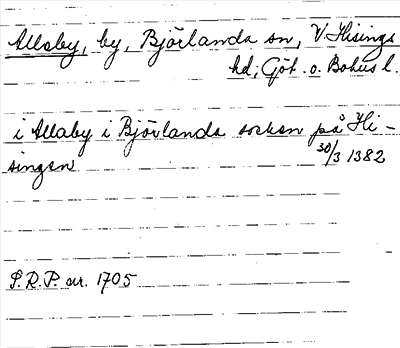 Allaby, by, Björlanda sn, V. Hisings
hd, Göt. o. Bohus l.
i Allaby i Björlanda socken på Hi-
singen 30/3 1382
S.R.P. nr. 1705